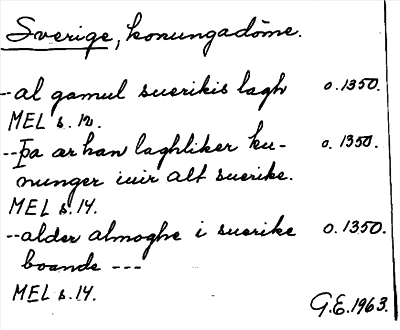 Sverige, konungadöme.
--al gamul suerikis lagh o.1350.
MEL s. 12.
--Þa ar han laghliker ku- o.1350.
nunger iuir alt suerike.
MEL s. 14.
--alder almoghe i suerike o.1350.
boande ---
MEL s. 14.
G.E. 1963.